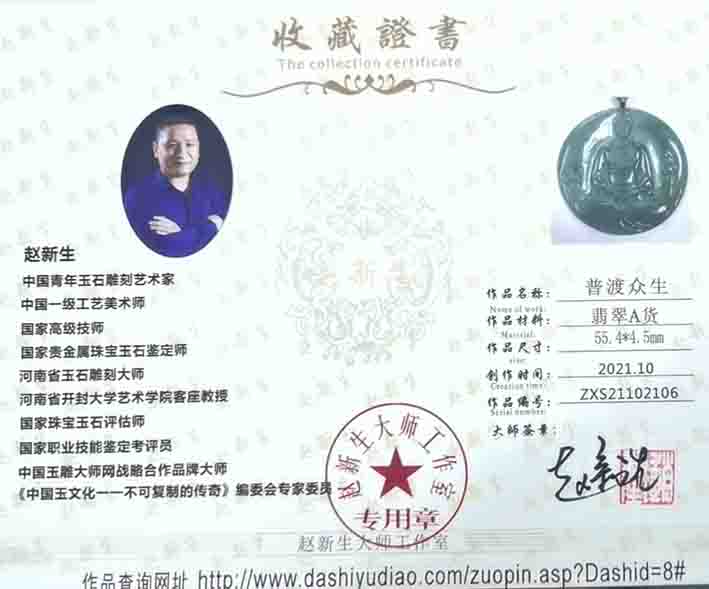 收藏證書
The collection certificate
赵新生
中国青年玉石雕刻艺术家
中国一级工艺美术师
国家高级技师
国家贵金属珠宝玉石鉴定师
河南省玉石雕刻大师
河南省开封大学艺术学院客座教授
国家珠宝玉石评估师
国家职业技能鉴定考评员
中国玉雕大师网战略合作品牌大师
《中国玉文化一一不可复制的传奇》编委会专家委员
作品名称： 普渡众生
Name of work:
作品材料： 翡翠A货
Material:
作品尺寸： 55.4*4.5mm
size:
创作时间： 2021.10
Creation time:
作品编号： ZXS21102106
Serial number:
大师签章：
赵新生大师工作室
专用章
赵新生大师工作室
作品查询网址 http://www.dashiyudiao.com/zuopin.asp?Dashid=8#